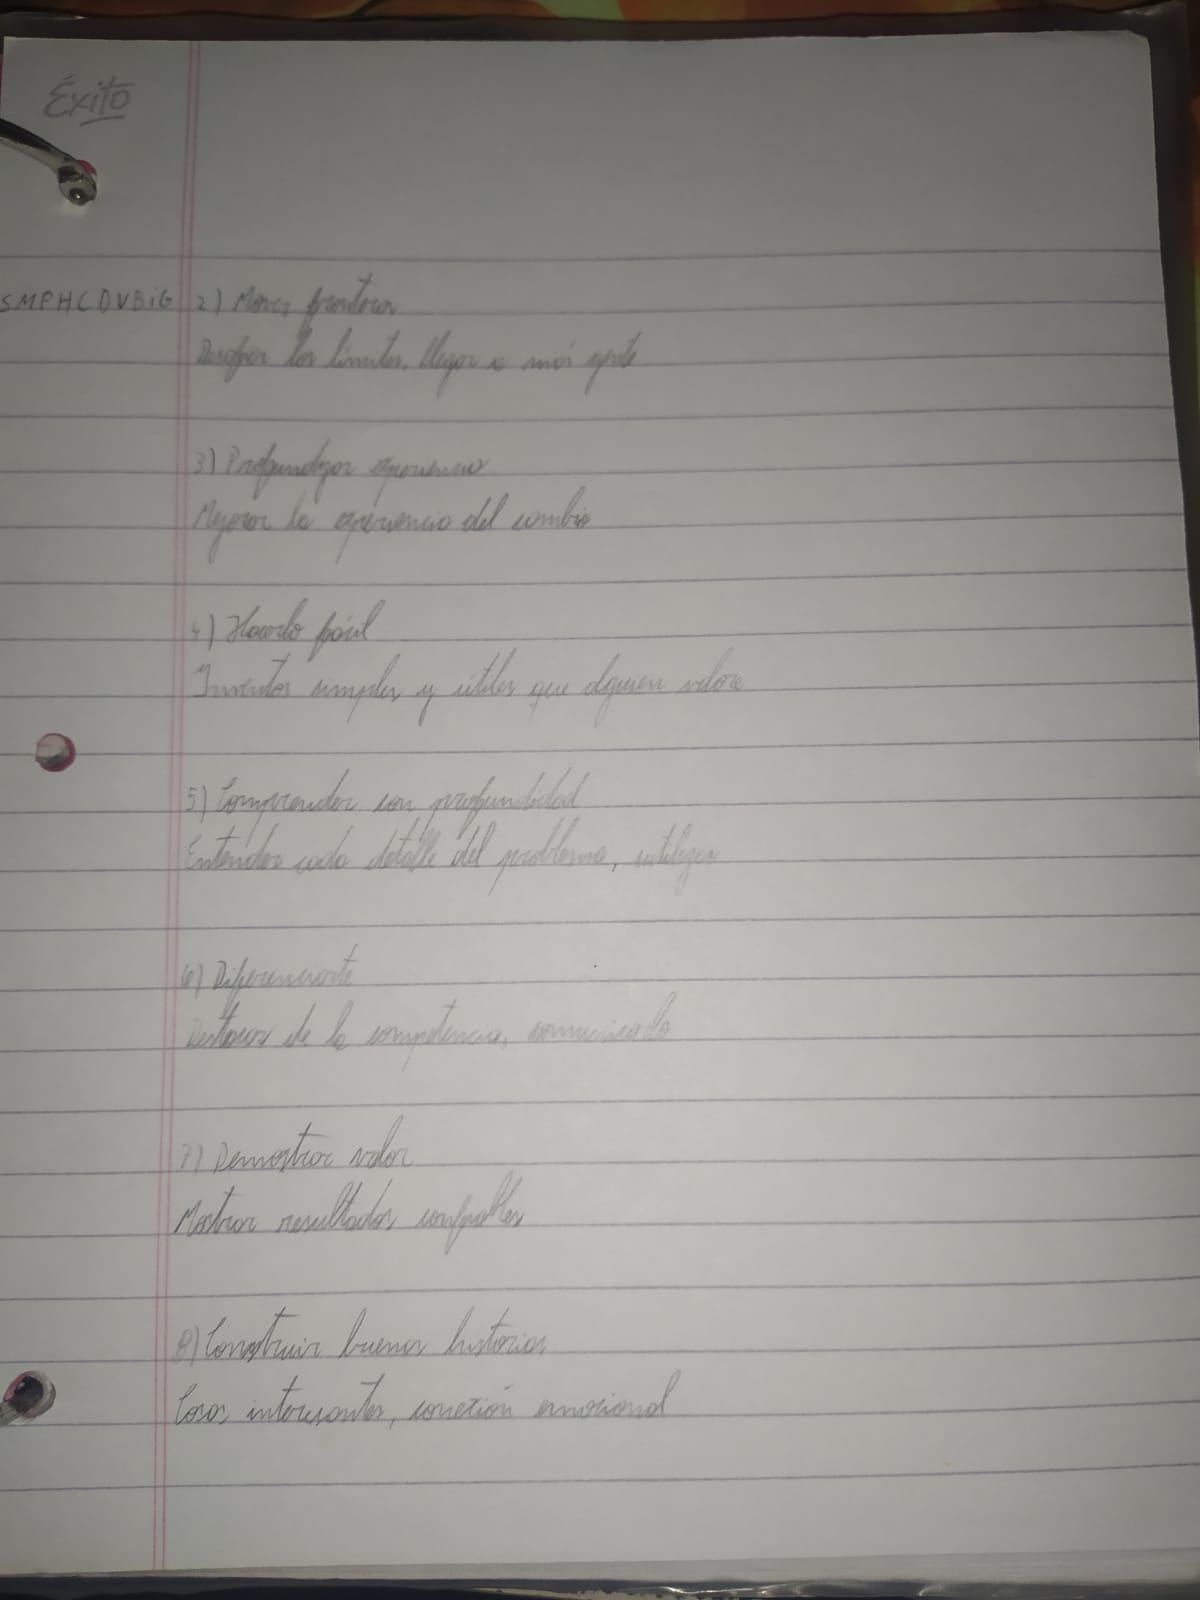 Éxito
SMPHCDVBIG 2) Mover fronteras
Desafiar los límites, llegar a más gente
3) Profundizar experiencia
Mejorar la experiencia del cambio
4) Hacerlo fácil
Inventos simples y útiles que alguien valore
5) Comprender con profundidad
Entender cada detalle del problema, sutilezas
6) Diferenciarte
Destacar de la competencia, comunicarlo
7) Demostrar valor
Mostrar resultados confiables
8) Construir buenas historias
Cosas interesantes, conexión emocional